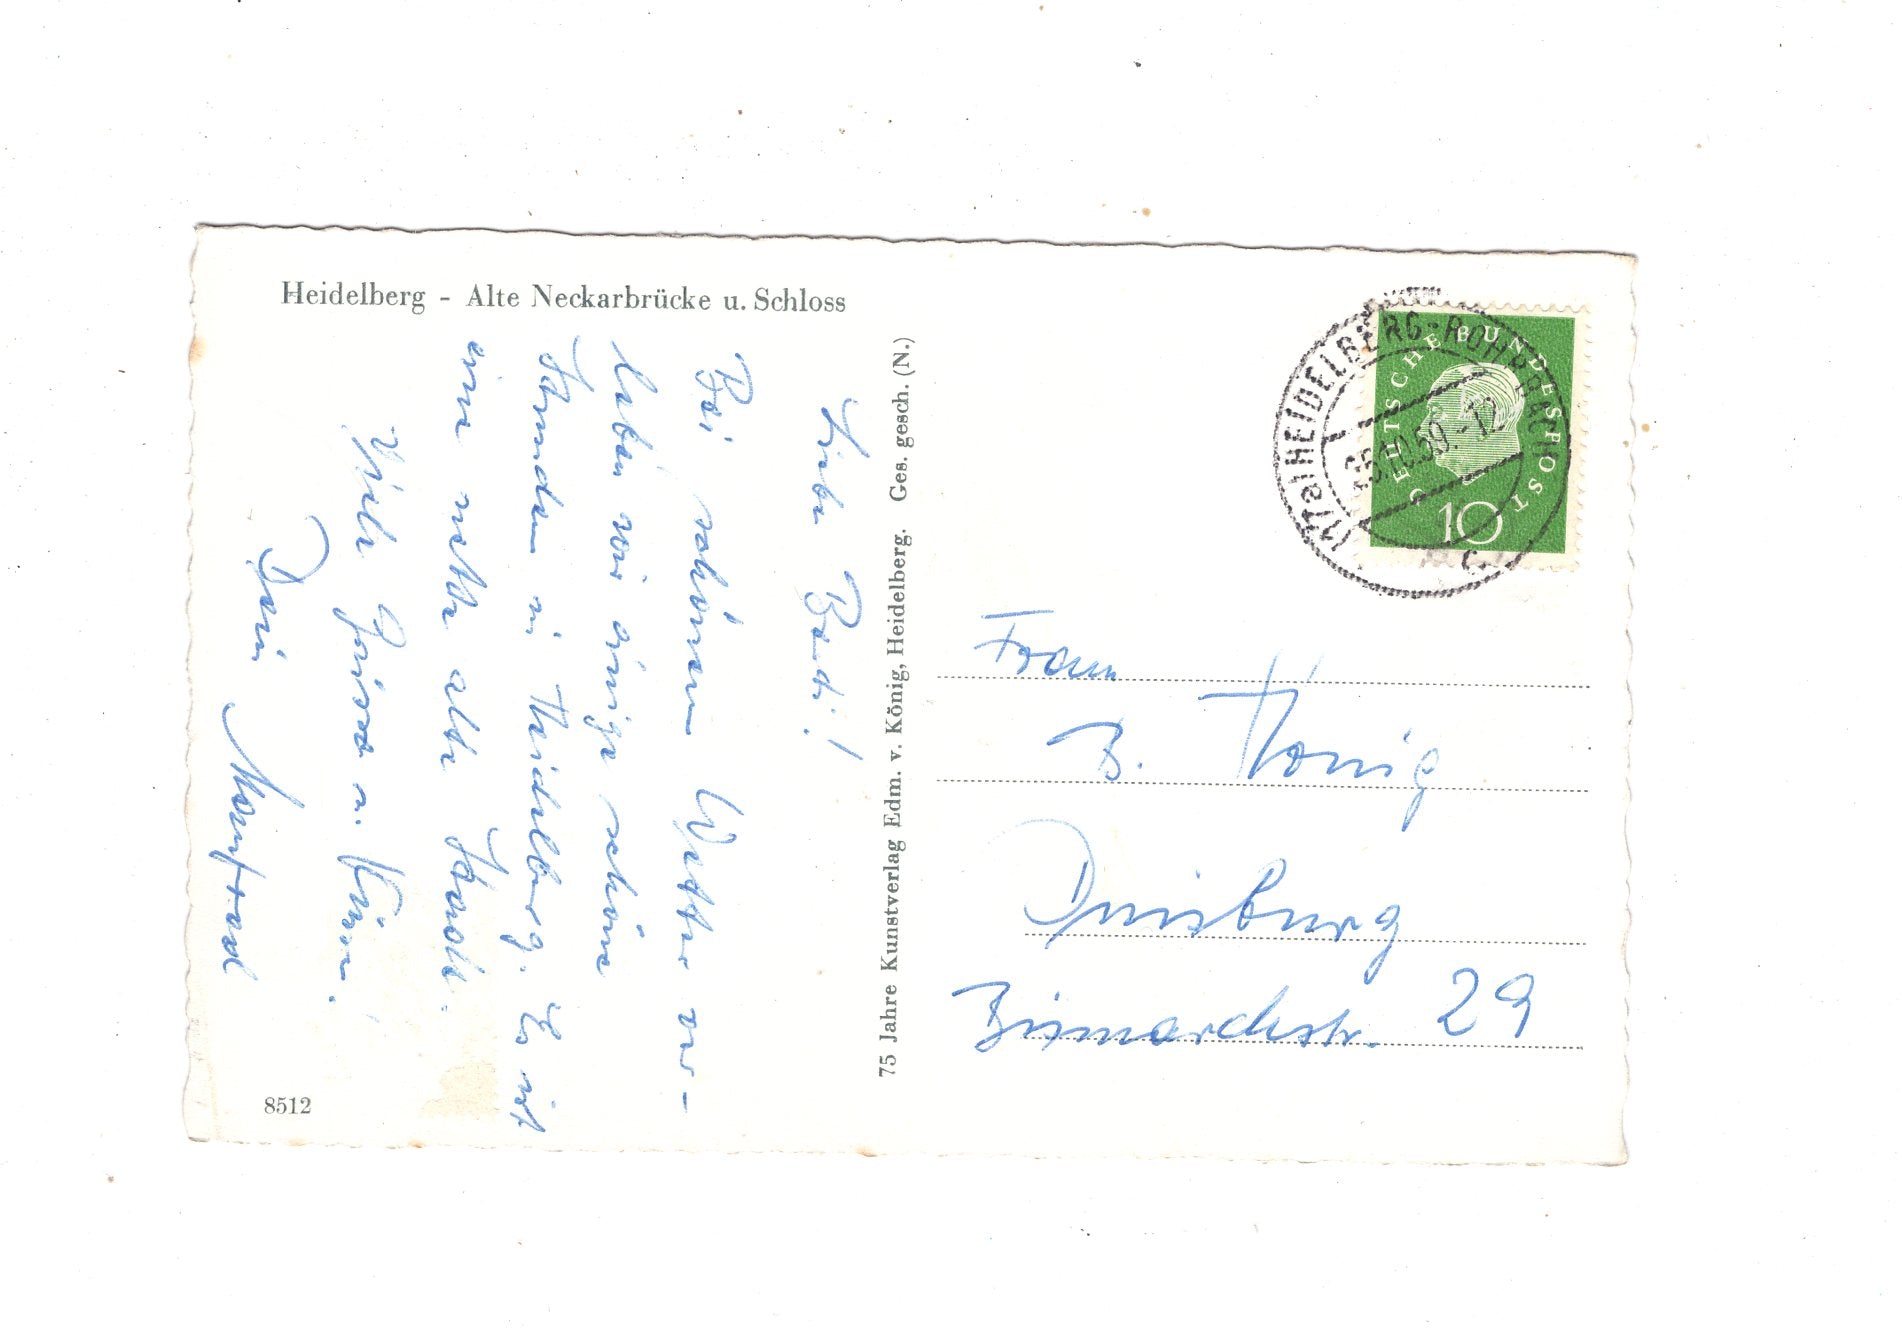 Heidelberg - Alte Neckarbrücke u. Schloss
Liebe Bärdi!
Bei schönem Wetter ver-
leben wir einige schöne
Stunden in Heidelberg. Es ist
eine nette alte Stadt.
Viele Grüsse u. Küsse!
Dein Manfred
8512
75 Jahre Kunstverlag Edm. v. König, Heidelberg. Ges. gesch. (N.)
DEUTSCHE BUNDESPOST
10
(17a) HEIDELBERG-ROHRBACH
25.10.59.-12
c
Frau
B. König
Duisburg
Bismarckstr. 29